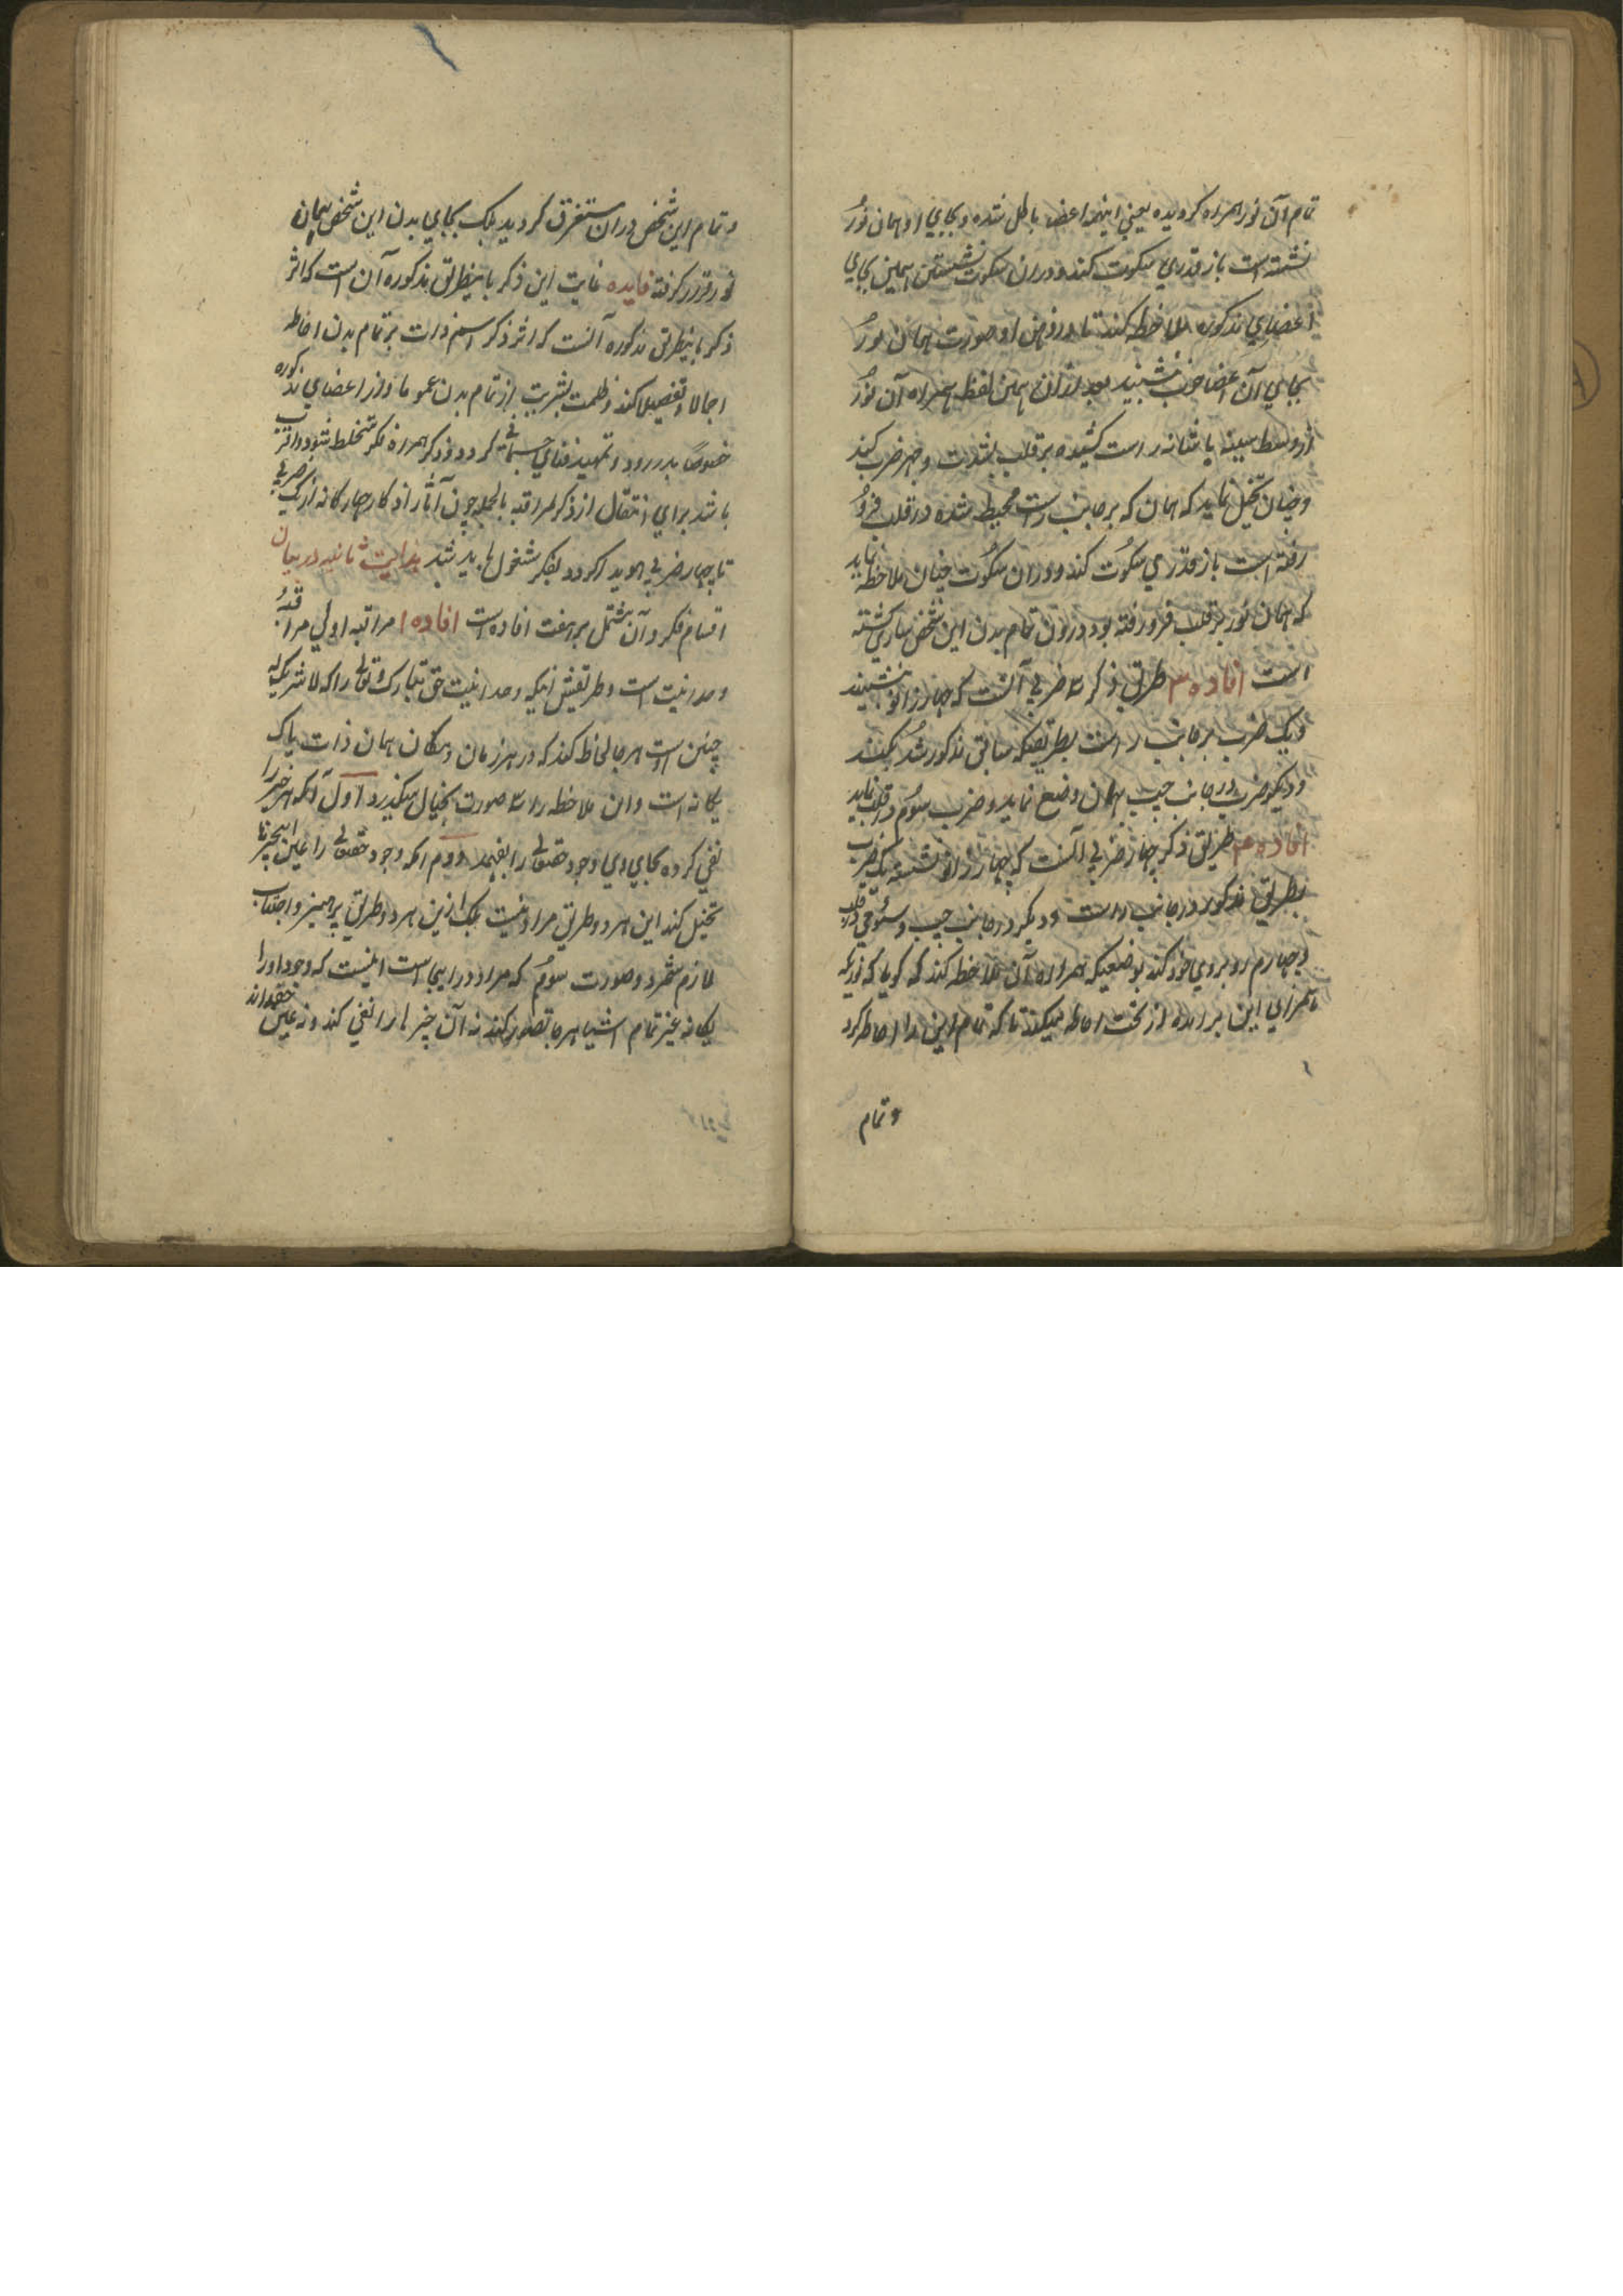 تمام آن نور همراه گردیده یعنی اینهمه اعضا باطل شده و بجایی او همان نور
نشسته است باز قدری سکوت کند و دران سکوت نشستن همین بجای
اعضایی مذکوره ملاحظه کند تا در ذهن او صورت همان نور
بجایی آن اعضا خوب نشیند بعد ازان همین لفظ همراه آن نور
از وسط سینه یا شانه راست کشیده بر قلب بشدت و جهر ضرب کند
و چنان تخیل نماید که همان که بر جانب راست محیط شده در قلب فرو
رفته است باز قدری سکوت کند و دران سکوت چنان ملاحظه نماید
که همان نور بر قلب فرو رفته بود درون تمام بدن این شخص ساری گشته
است افاده ۳ طریق ذکر سه ضربی آنست که چهار زانو نشیند
و یک ضرب بر جانب راست بطریقیکه سابق مذکور شد بکند
و دیگر ضرب در جانب چپ بهمان وضع نماید و ضرب سوم در قلب نماید
افاده ۴ طریق ذکر چهار ضربی آنست که چهار زانو نشسته یک ضرب
بطریق مذکور در جانب راست و دیگر در جانب چپ و سومی در قلب
و چهارم روبروی خود کند بوضعیکه همراه آن ملاحظه کند که گویا که نوریکه
همرای این برآمده از تحت احاطه میکند تا که تمام این را احاطه کرد
و تمام
و تمام این شخص دران مستغرق گردید بلکه بجایی بدن این شخص همان
نور قرار گرفته فایده غایت این ذکر باینطریق مذکوره آن است که اثر
ذکر باینطریق مذکوره آنست که اثر ذکر اسم ذات بر تمام بدن احاطه
اجمالا و تفصیلا کند و ظلمت بشریت از تمام بدن عموما و از اعضای مذکوره
خصوصًا بدر رود و تمهید فنای جسمانی گردد و ذکر همراه فکر مختلط شود و اقرب
باشد برای انتقال از ذکر بمراقبه بالجمله چون آثار اذکار چهارگانه از یک ضربی
تا چهار ضربی هویدا گردد بفکر مشغول باید شد هدایت ثانیه در بیان
اقسام فکر و آن مشتمل بر هفت افاده است افاده ۱ مراقبه اولی مراقبهٔ
وحدانیت است و طریقش اینکه وحدانیت حق تبارک و تعالی را که لا شریک له
چنین است هر جا لحاظ کند که در هر زمان و مکان همان ذات پاک
یگانه است و این ملاحظه را سه صورت بخیال میگذرد اول آنکه هر چیز را
نفی کرده بجایی وی وجود حقتعالی را بفهمد دوم آنکه وجود حقتعالی را عین هر چیز
تخیل کند این هر دو طریق مراد نیست بلکه ازین هر دو طریق پرهیز و اجتناب
لازم شمرد و صورت سوم که مراد در اینجا است اینست که وجود او را
یگانه غیر تمام اشیا هر جا تصور کند نه آن چیز ها را نفی کند و نه عین حق داند